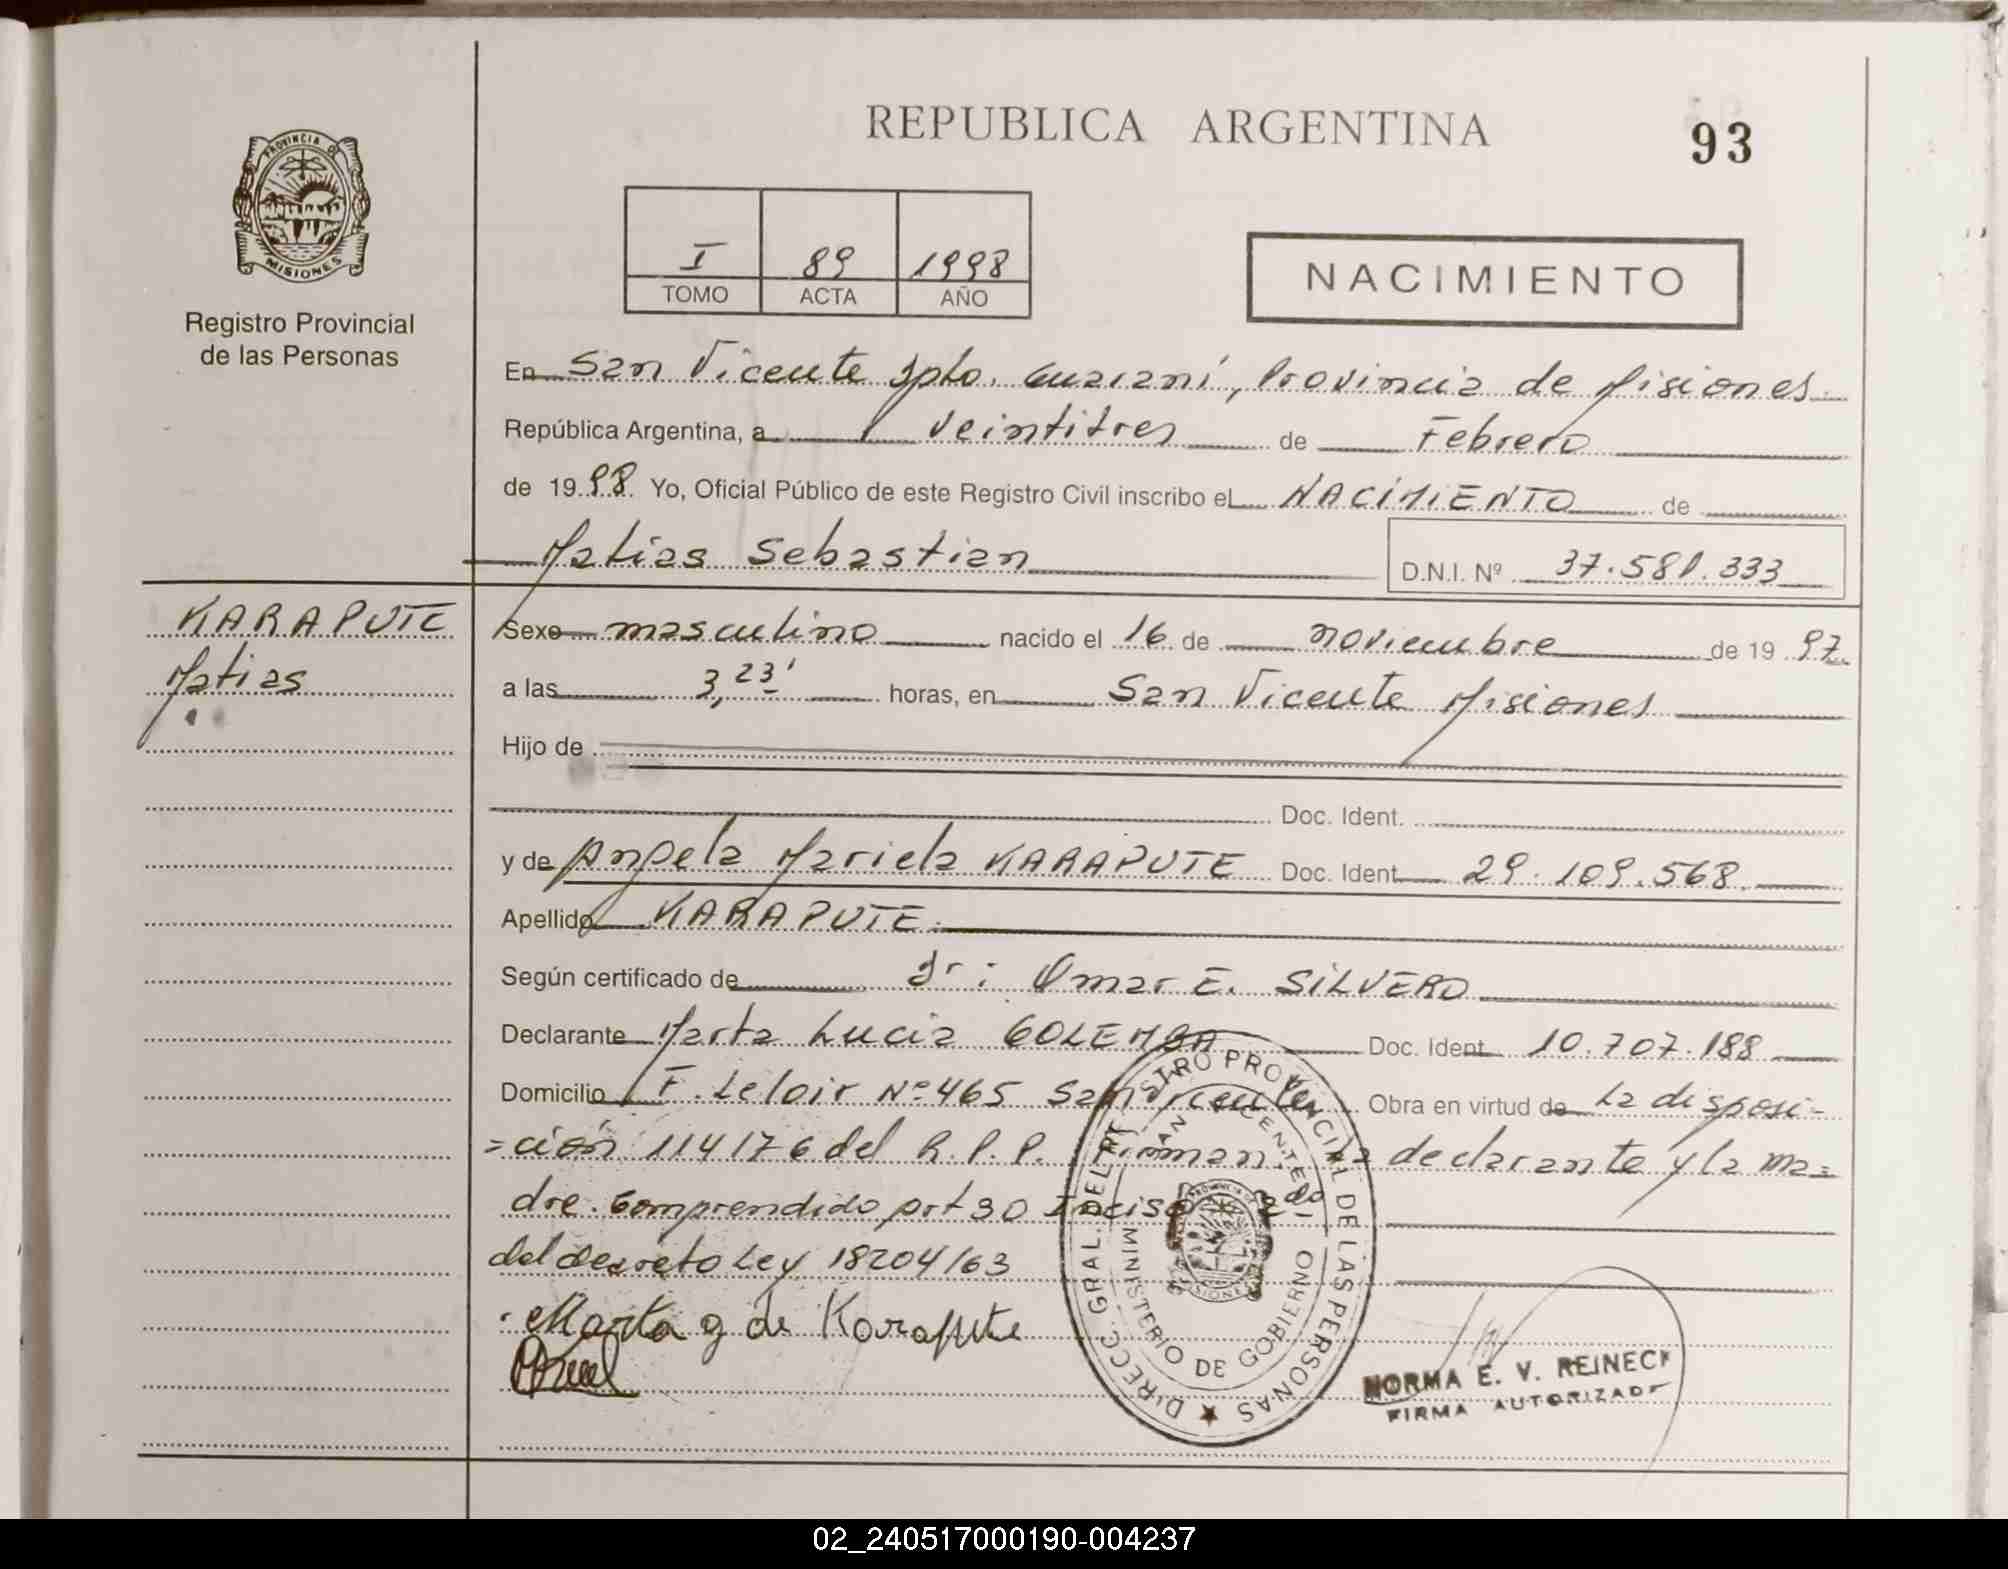 REPUBLICA ARGENTINA
93
PROVINCIA DE
MISIONES
Registro Provincial
de las Personas
I 89 1998
TOMO ACTA AÑO
NACIMIENTO
En San Vicente Dpto. Guaraní, Provincia de Misiones
República Argentina, a veintitres de Febrero
de 1998. Yo, Oficial Público de este Registro Civil inscribo el NACIMIENTO de
Matias Sebastian D.N.I. Nº 37.581.333
KARAPUTE
Matias
Sexo masculino nacido el 16 de noviembre de 1997.
a las 3,23' horas, en San Vicente Misiones
Hijo de
Doc. Ident.
y de Angela Mariela KARAPUTE Doc. Ident 29.109.568.
Apellido KARAPUTE.
Según certificado de Dr: Omar E. SILVERO
Declarante Marta Lucia GOLEMBA Doc. Ident 10.707.188
Domicilio F. Leloir Nº 465 San Vicente Obra en virtud de La disposi-
=ción 114176 del R.P.P. Firman. La declarante y la ma=
dre. Comprendido art 30 Inciso 2do
del decreto Ley 18204/63
Marta g de Karapute
DIRECC. GRAL. DEL REGISTRO PROVINCIAL DE LAS PERSONAS
SAN VICENTE
MINISTERIO DE GOBIERNO
NORMA E. V. REINECK
FIRMA AUTORIZADA
02_240517000190-004237